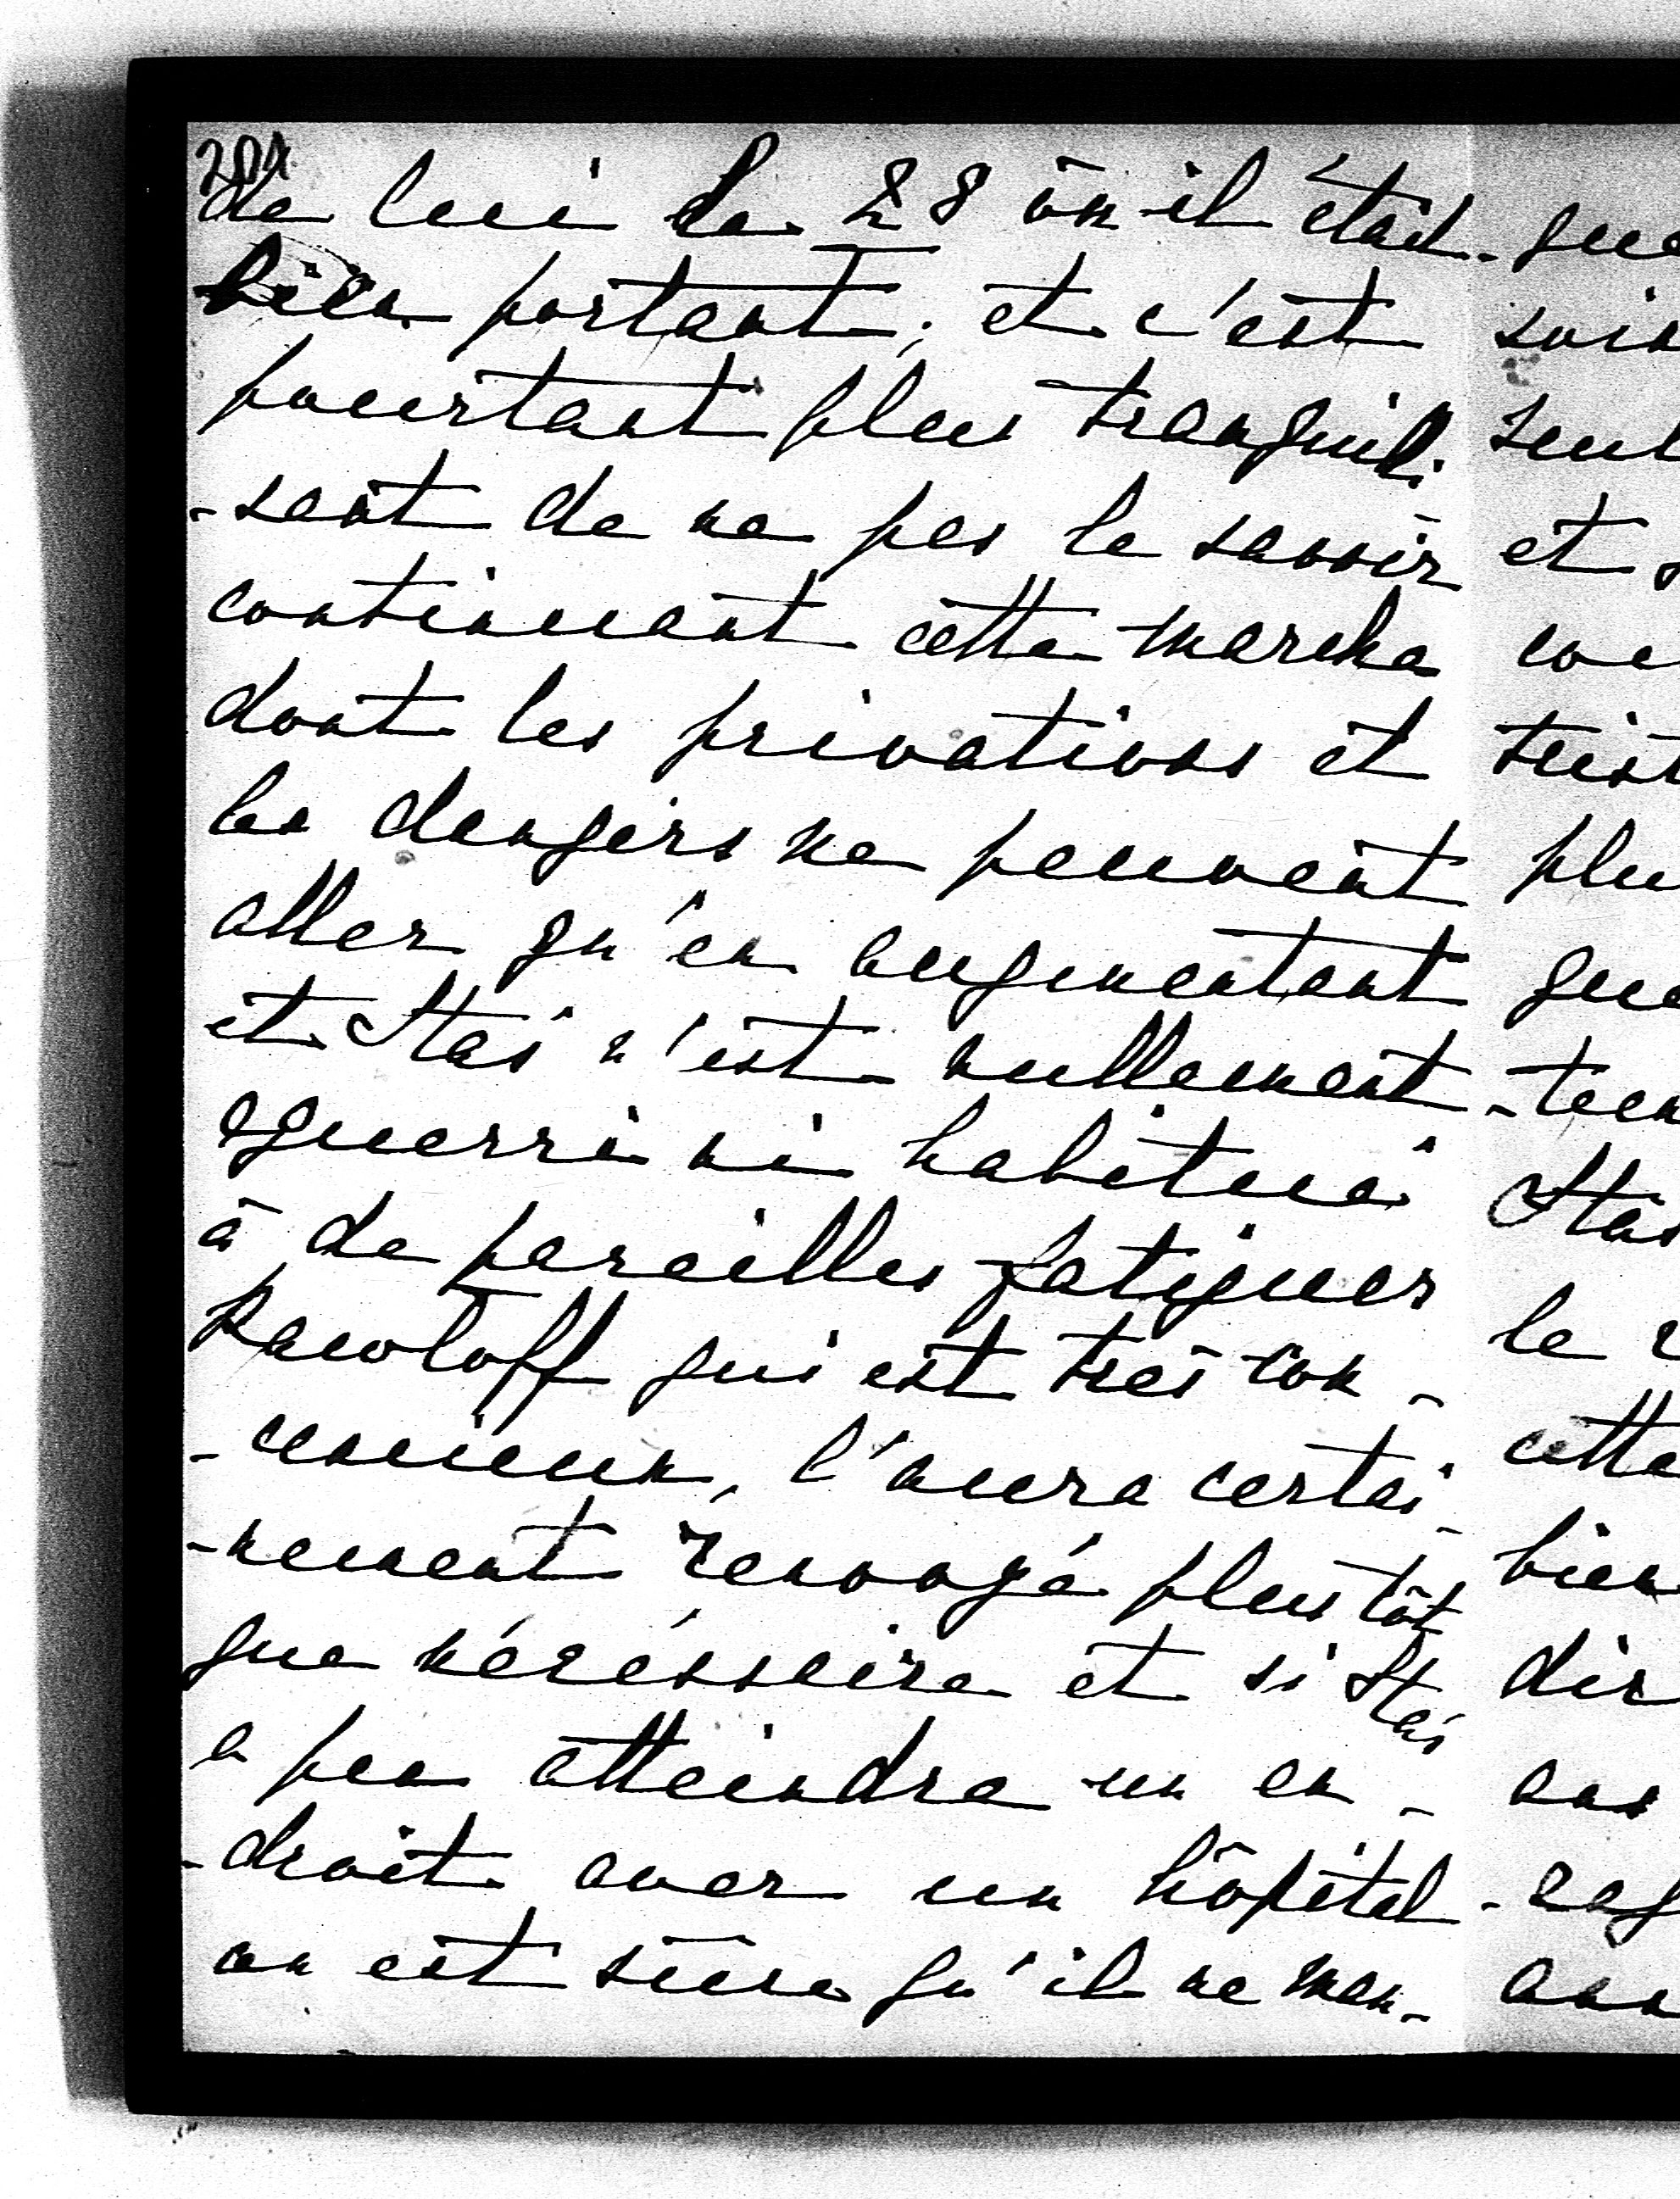 204
de lui de 28 où il était
bien portant; et c'est
pourtant plus tranquili
-sant de ne pas le savoir
continuant cette marche
dont les privations et
les dangers ne peuvent
aller qu'en augmentant
et Stas n'est nullement
aguerri ni habitué
à de pareilles fatigues
Pawloff qui est très con-
-cencieux, l'aura certai-
-nement renvoyé plus tôt
que nécéssaire et si Stas
a pu atteindre un en-
-droit avec un hôpital
on est sûre qu'il ne man-